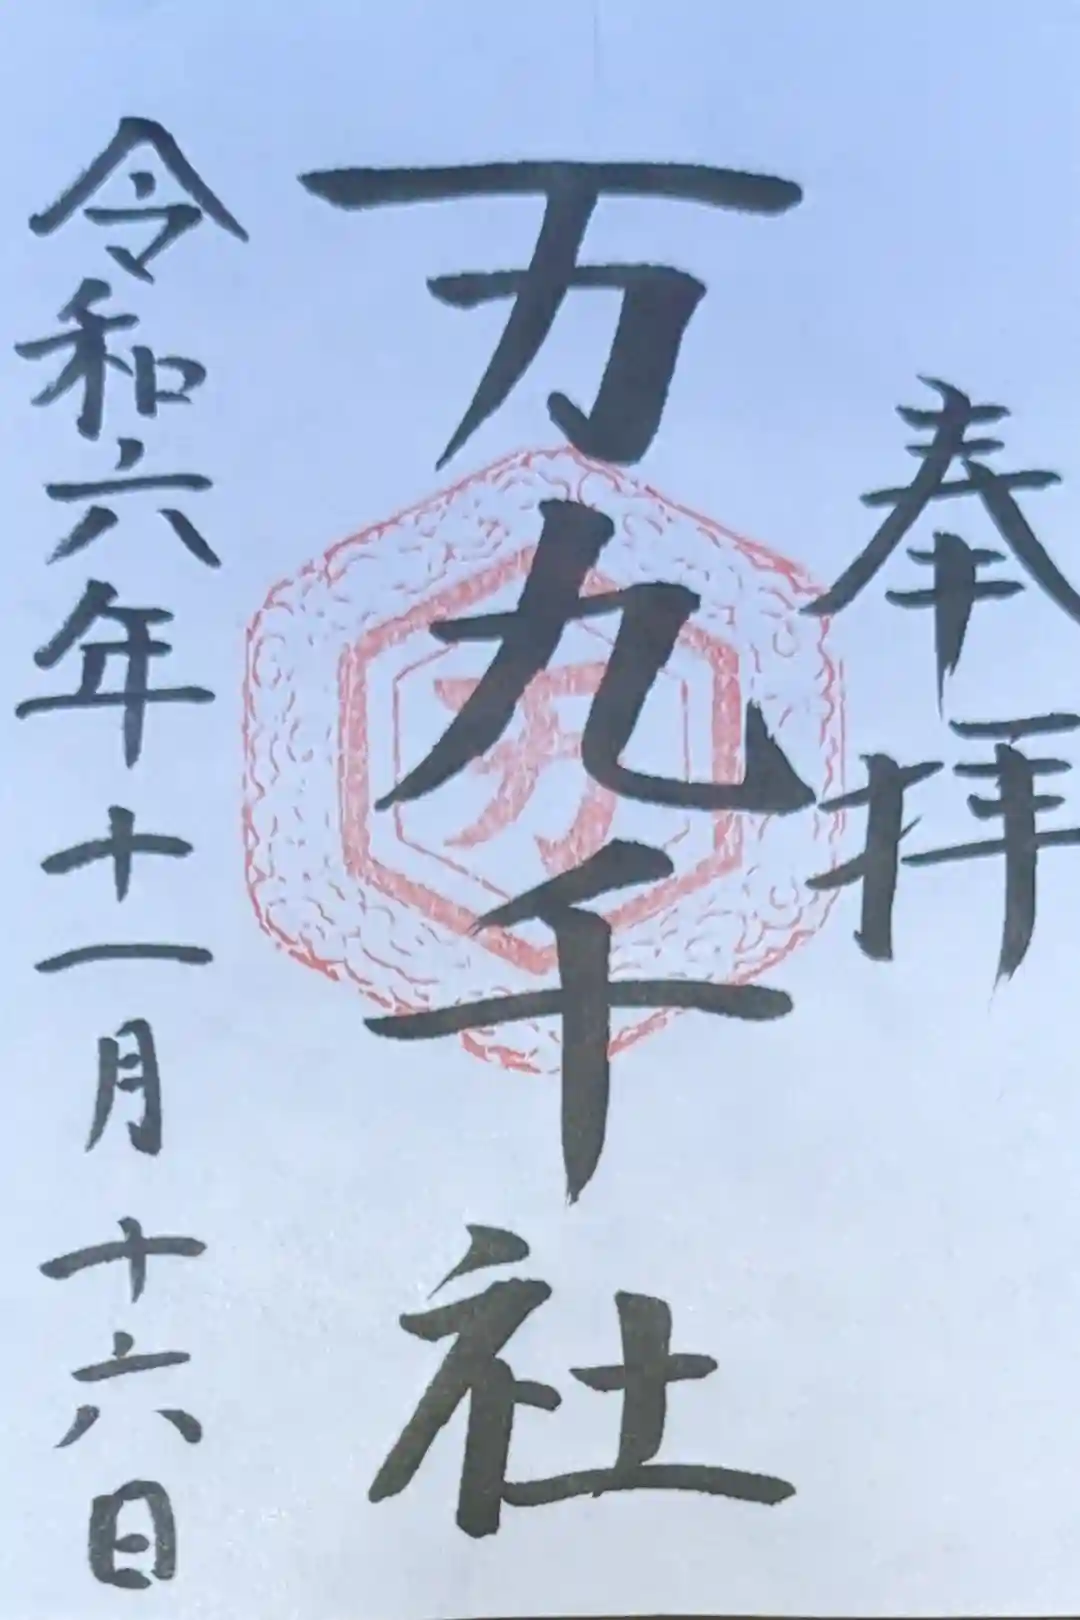 奉拝
万九千社
令和六年十一月十六日